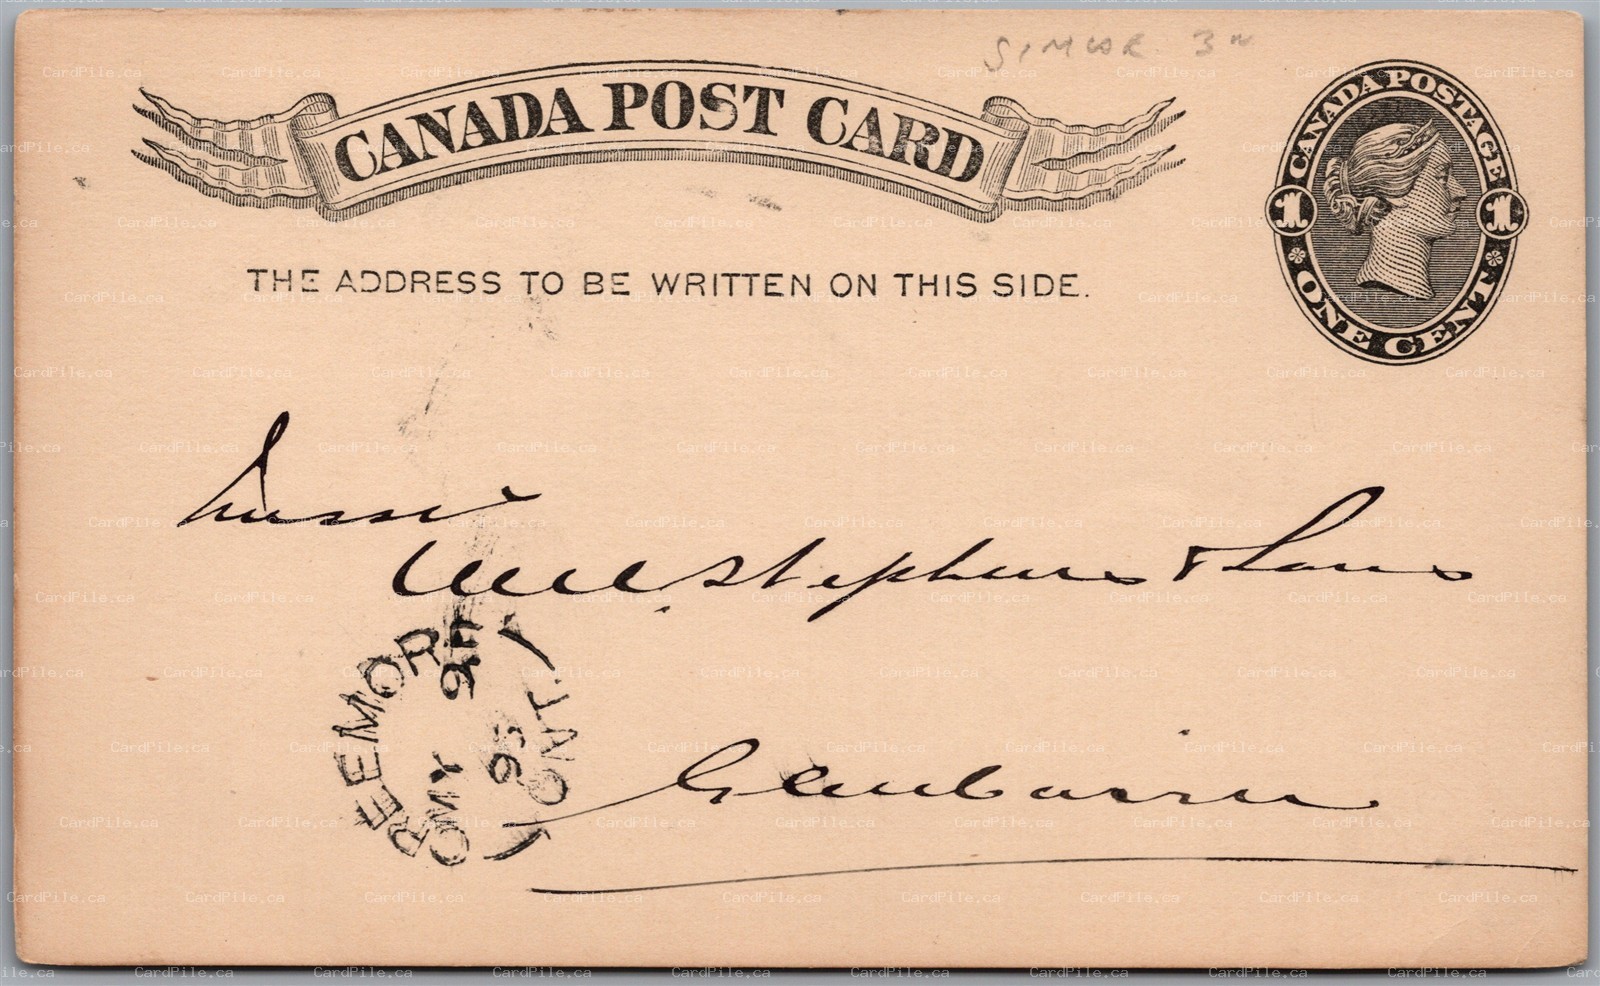 SIMCOE 3 N
CANADA POST CARD
CANADA POSTAGE
1 1
ONE CENT
THE ADDRESS TO BE WRITTEN ON THIS SIDE.
Messrs
Wm. Stephens & Sons
Glencairn
CREEMORE
MY
95
ONT.
CardPile.ca